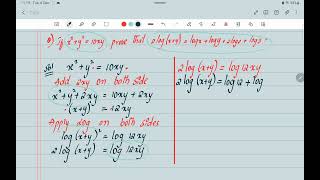 Q) If x² + y² = 10xy prove that 2 log (x+y) = log x + log y + 2 log 2 + log 3
Sol x² + y² = 10xy
Add 2xy on both side
x² + y² + 2xy = 10xy + 2xy
(x+y)² = 12xy
Apply log on both sides
log (x+y)² = log 12xy
2 log (x+y) = log 12xy
2 log (x+y) = log 12xy
2 log (x+y) = log 12 + log